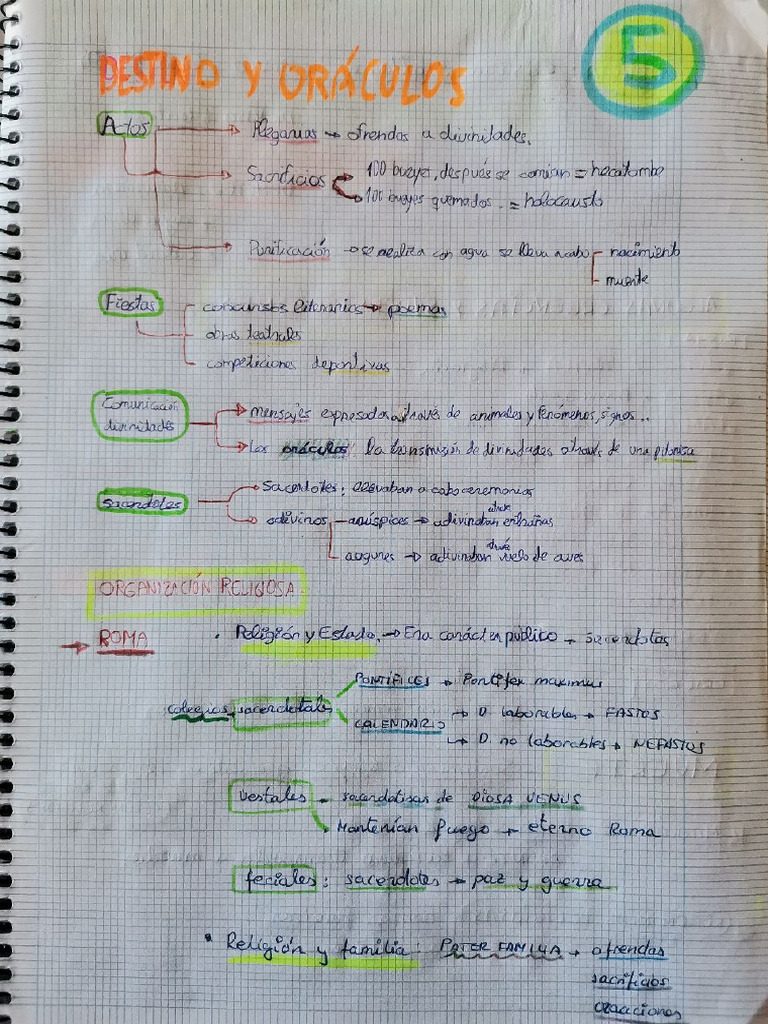 DESTINO Y ORÁCULOS
5
Actos
Plegarias → ofrendas a divinidades.
Sacrificios
100 bueyes, después se comían = hecatombe
100 bueyes quemados. = holocausto
Purificación → se realiza con agua se lleva a cabo
nacimiento
muerte
Fiestas
concursos literarios → poemas
obras teatrales
competiciones deportivas
Comunicación divinidades
mensajes expresados a través de animales y fenómenos, signos...
Los oráculos la transmisión de divinidades através de una pitonisa
sacerdotes
Sacerdotes: llevaban a cabo ceremonias
adivinos
arúspices → adivinaban entrañas
augures → adivinaban través vuelo de aves
ORGANIZACIÓN RELIGIOSA
→ ROMA
• Religión y Estado. → Era carácter público → sacerdotes
colegios sacerdotales
PONTÍFICES → Pontifex maximus
CALENDARIO
→ D. laborables → FASTOS
→ D. no laborables → NEFASTOS
vestales
sacerdotisas de DIOSA VENUS
Mantenían fuego → eterno Roma
feciales: sacerdotes → paz y guerra
• Religión y familia: PATER FAMILIA → ofrendas
sacrificios
oraciones